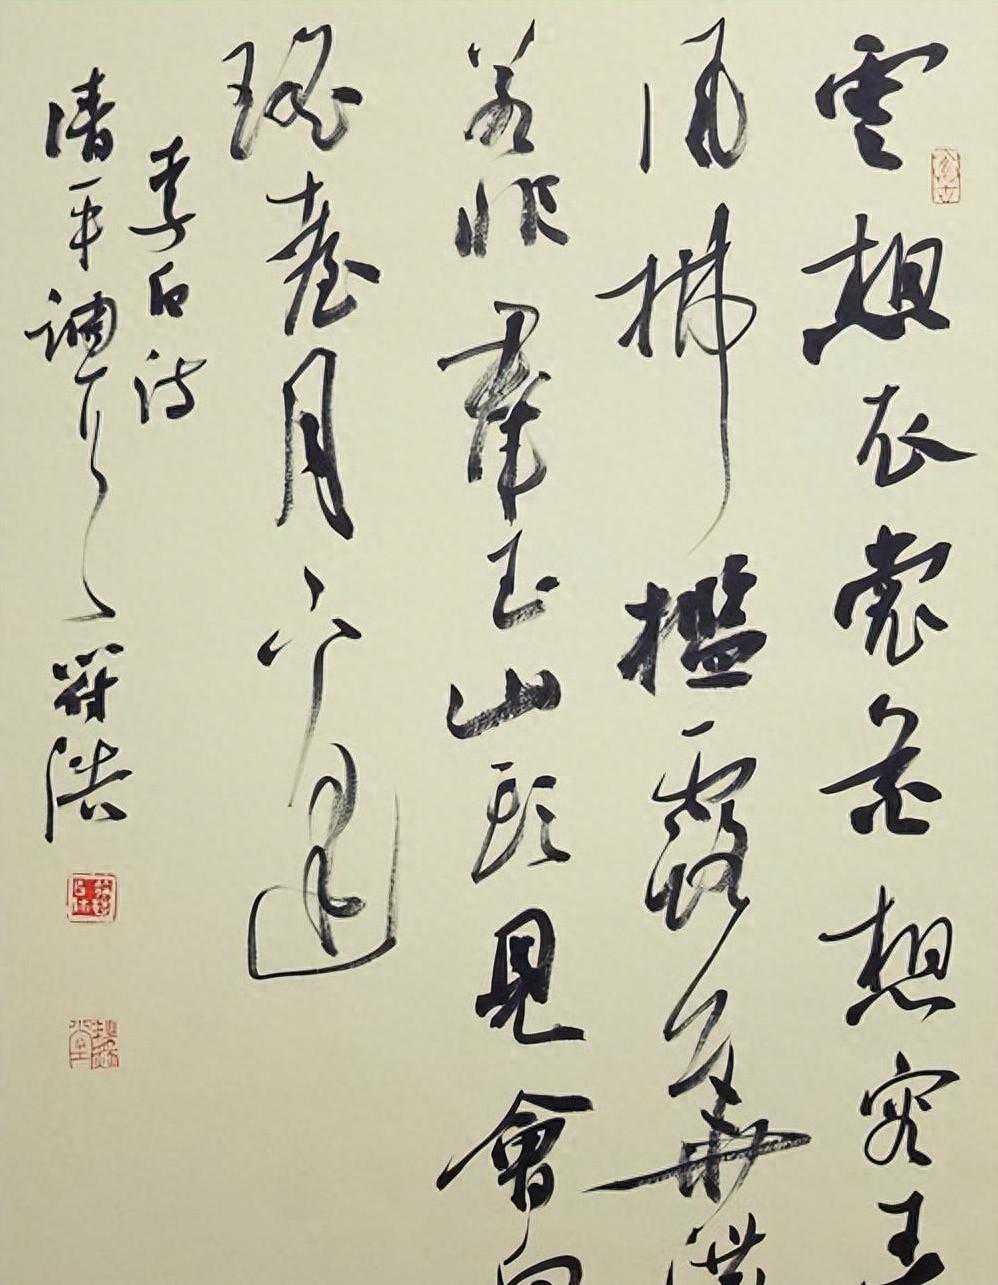 雲想衣裳花想容春
風拂檻露華濃
若非群玉山頭見會向
瑤臺月下逢
李白詩
清平調
浩